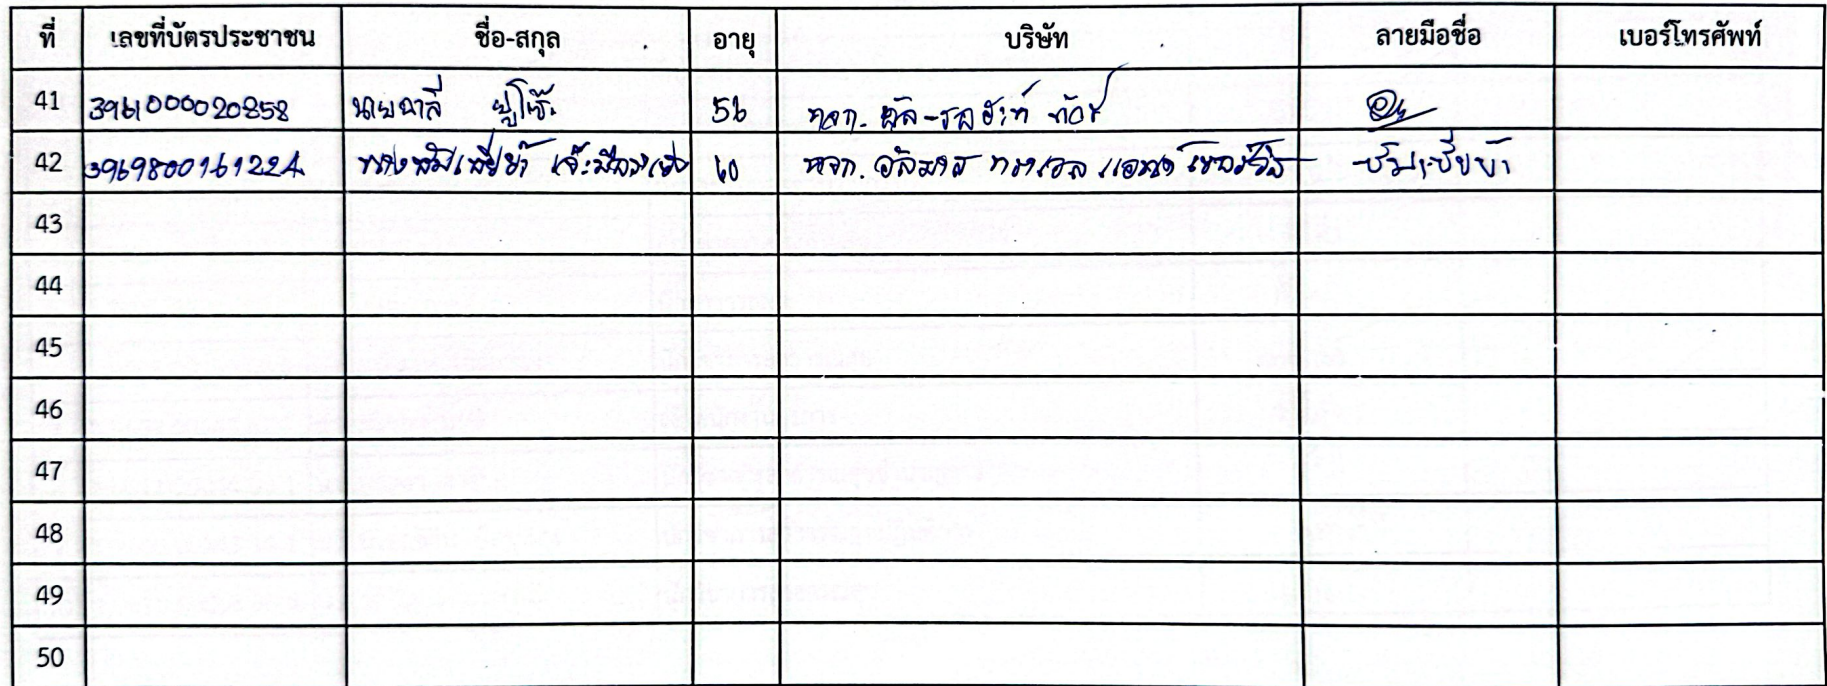 ที่ เลขที่บัตรประชาชน ชื่อ-สกุล อายุ บริษัท ลายมือชื่อ เบอร์โทรศัพท์
41 3961000020858 นายอาลี ยูโซ๊ะ 56 หจก.
42 3969800161224 นาง 60 หจก. อัลมาส ทราเวล แอนด์ เซอร์วิส
43
44
45
46
47
48
49
50